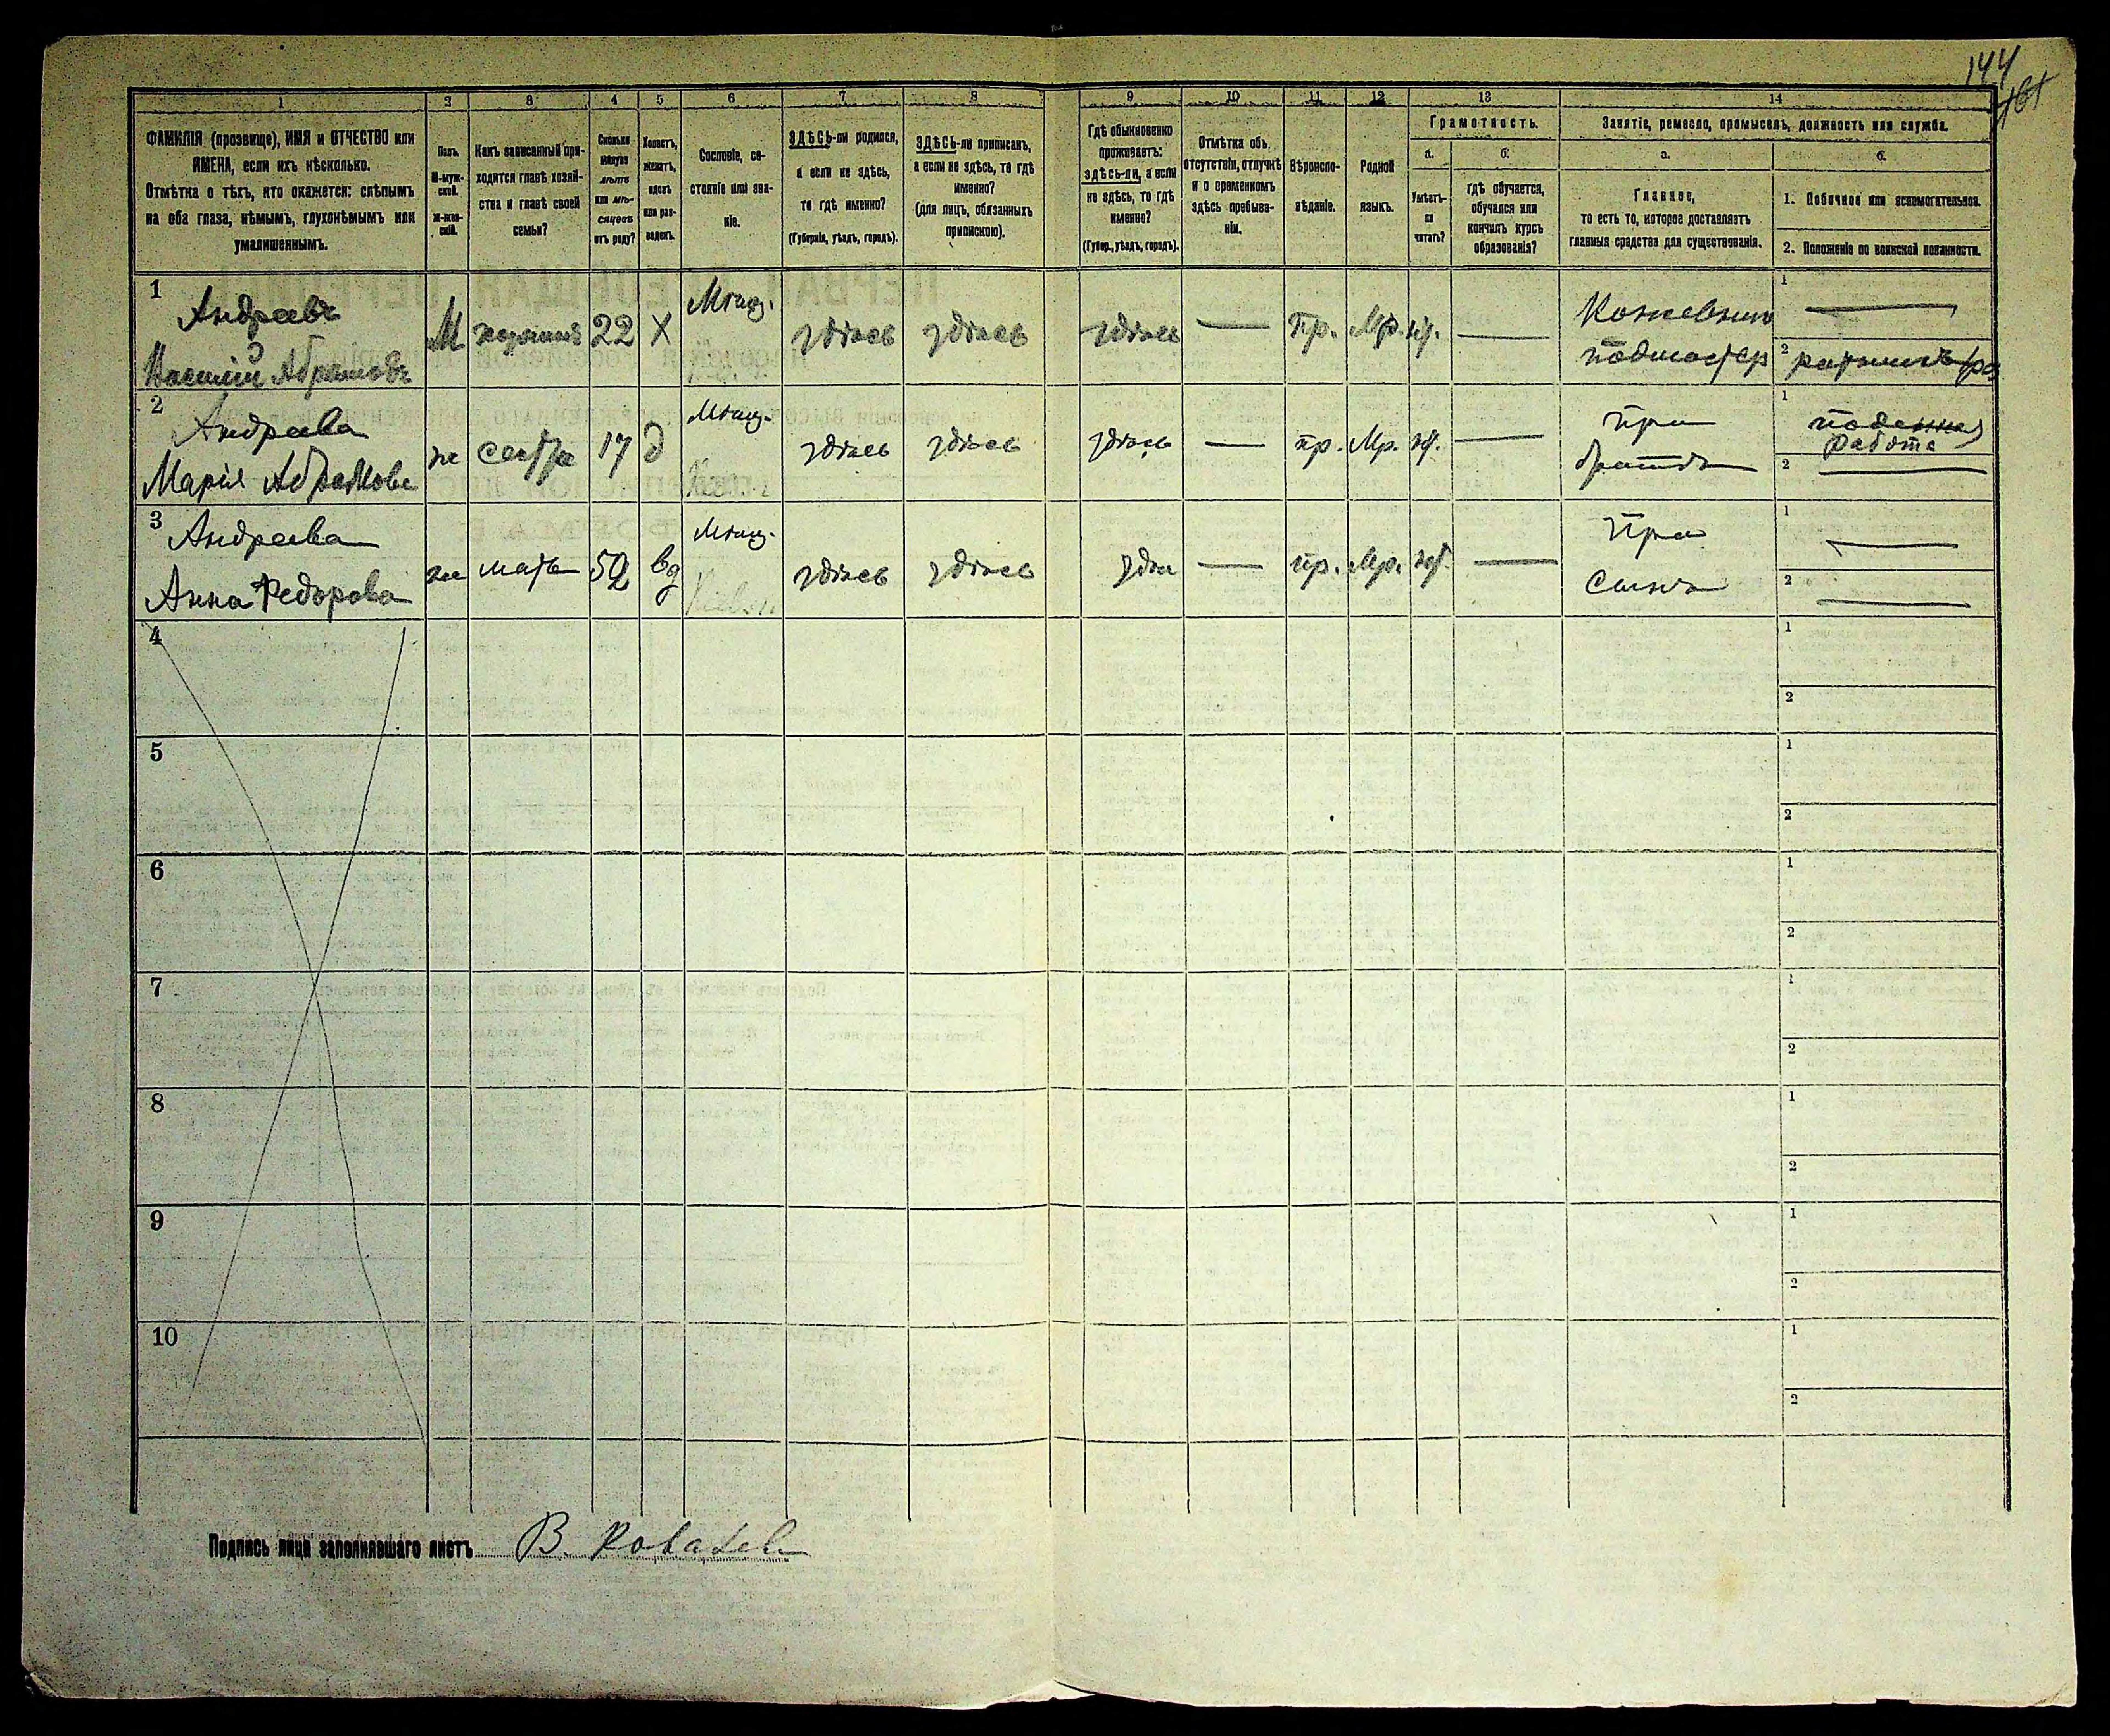 144
1
2
3
4
5
6
7
8
9
10
11
12
13
14
ФАМИЛІЯ (прозвище), ИМЯ и ОТЧЕСТВО или
ИМЕНА, если ихъ нѣсколько.
Отмѣтка о тѣхъ, кто окажется: слѣпымъ
на оба глаза, нѣмымъ, глухонѣмымъ или
умалишеннымъ.
Полъ.
М-муж-
ской.
Ж-жен-
скій.
Какъ записанный при-
ходится главѣ хозяй-
ства и главѣ своей
семьи?
Сколько
минуло
лѣтъ
или мѣ-
сяцевъ
отъ роду?
Холостъ,
женатъ,
вдовъ
или раз-
веденъ.
Сословіе, со-
стояніе или зва-
ніе.
ЗДѢСЬ-ли родился,
а если не здѣсь,
то гдѣ именно?
(Губернія, уѣздъ, городъ).
ЗДѢСЬ-ли приписанъ,
а если не здѣсь, то гдѣ
именно?
(для лицъ, обязанныхъ
припискою).
Гдѣ обыкновенно
проживаетъ:
здѣсь-ли, а если
не здѣсь, то гдѣ
именно?
(Губер., уѣздъ, городъ).
Отмѣтка объ
отсутствіи, отлучкѣ
и о временномъ
здѣсь пребыва-
ніи.
Вѣроиспо-
вѣданіе.
Родной
языкъ.
Грамотность.
а.
Умѣетъ-
ли
читать?
б.
гдѣ обучается,
обучался или
кончилъ курсъ
образованія?
Занятіе, ремесло, промыселъ, должность или служба.
а.
Главное,
то есть то, которое доставляетъ
главныя средства для существованія.
б.
1. Побочное или вспомогательное.
2. Положеніе по воинской повинности.
1
Андреевъ
Василій Абрамовъ
М
хозяинъ
22
Х
Мѣщ.
здѣсь
здѣсь
здѣсь
—
пр.
Мр.
—
Кожевник
подмастер
1
—
2
2
Андреева
Марія Абрамова
ж
сестра
17
д
Мѣщ.
здѣсь
здѣсь
здѣсь
—
пр.
Мр.
—
при
братѣ
1
работа
2
—
3
Андреева
Анна Федорова
ж
мать
52
вд
Мѣщ.
здѣсь
здѣсь
—
пр.
Мр.
—
При
сынѣ
1
—
2
—
4
1
2
5
1
2
6
1
2
7
1
2
8
1
2
9
1
2
10
1
2
Подпись лица заполнявшаго листъ
В.